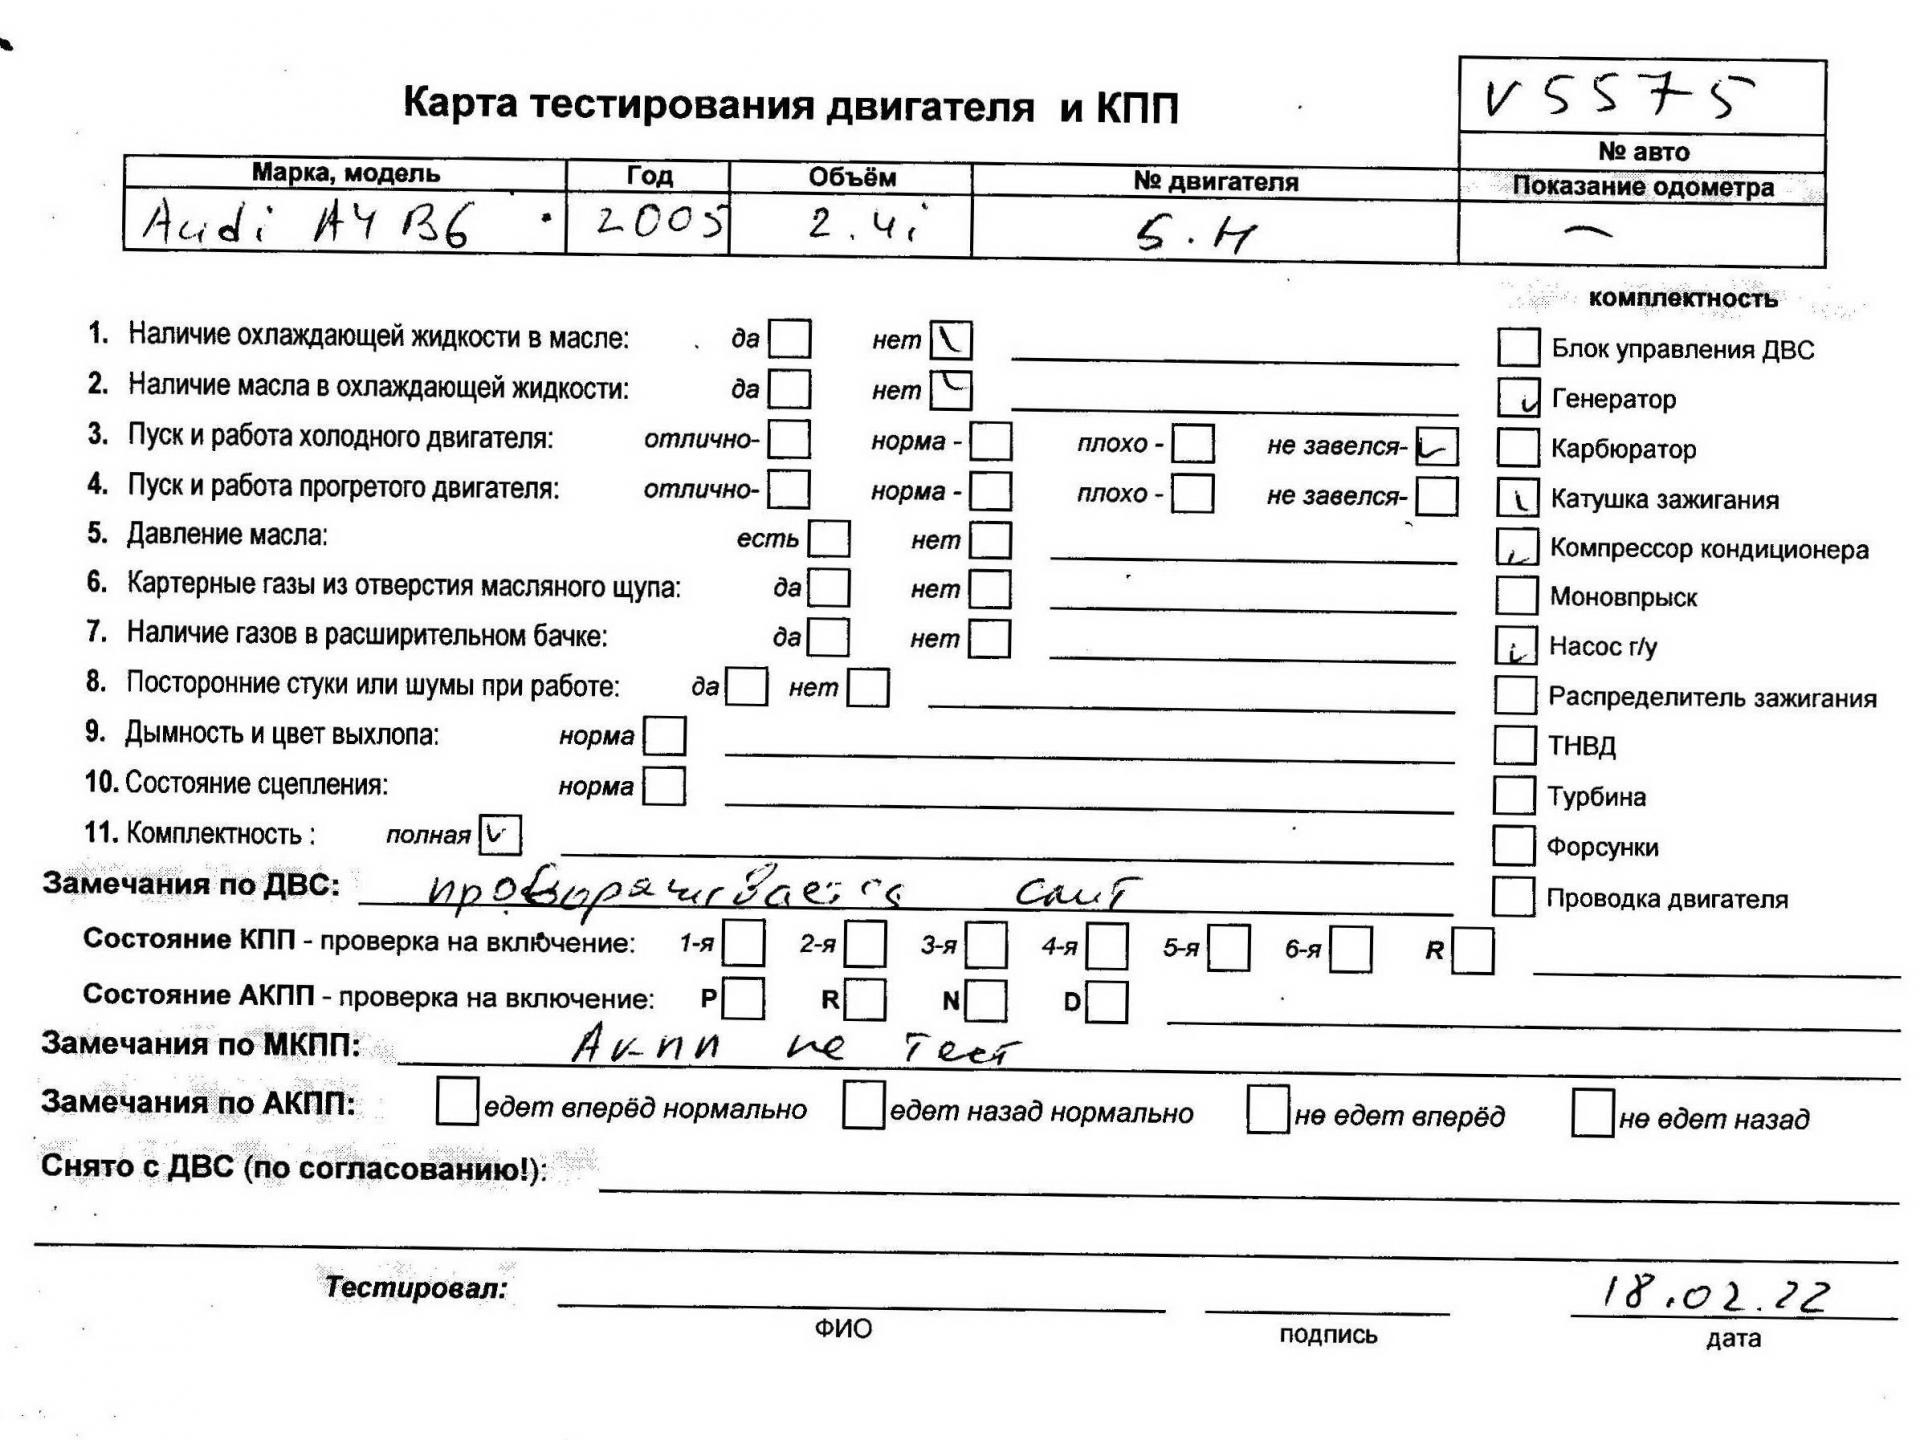 V5575
Карта тестирования двигателя и КПП
№ авто
Марка, модель Год Объём № двигателя Показание одометра
Audi A4 B6 2005 2.4i Б.Н –
комплектность
1. Наличие охлаждающей жидкости в масле: да нет
Блок управления ДВС
2. Наличие масла в охлаждающей жидкости: да нет
Генератор
3. Пуск и работа холодного двигателя: отлично- норма - плохо - не завелся-
Карбюратор
4. Пуск и работа прогретого двигателя: отлично- норма - плохо - не завелся-
Катушка зажигания
5. Давление масла: есть нет
Компрессор кондиционера
6. Картерные газы из отверстия масляного щупа: да нет
Моновпрыск
7. Наличие газов в расширительном бачке: да нет
Насос г/у
8. Посторонние стуки или шумы при работе: да нет
Распределитель зажигания
9. Дымность и цвет выхлопа: норма
ТНВД
10. Состояние сцепления: норма
Турбина
11. Комплектность : полная
Форсунки
Замечания по ДВС:
Проводка двигателя
Состояние КПП - проверка на включение: 1-я 2-я 3-я 4-я 5-я 6-я R
Состояние АКПП - проверка на включение: P R N D
Замечания по МКПП: Акпп не тест
Замечания по АКПП: едет вперёд нормально едет назад нормально не едет вперёд не едет назад
Снято с ДВС (по согласованию!):
Тестировал: 18.02.22
ФИО подпись дата